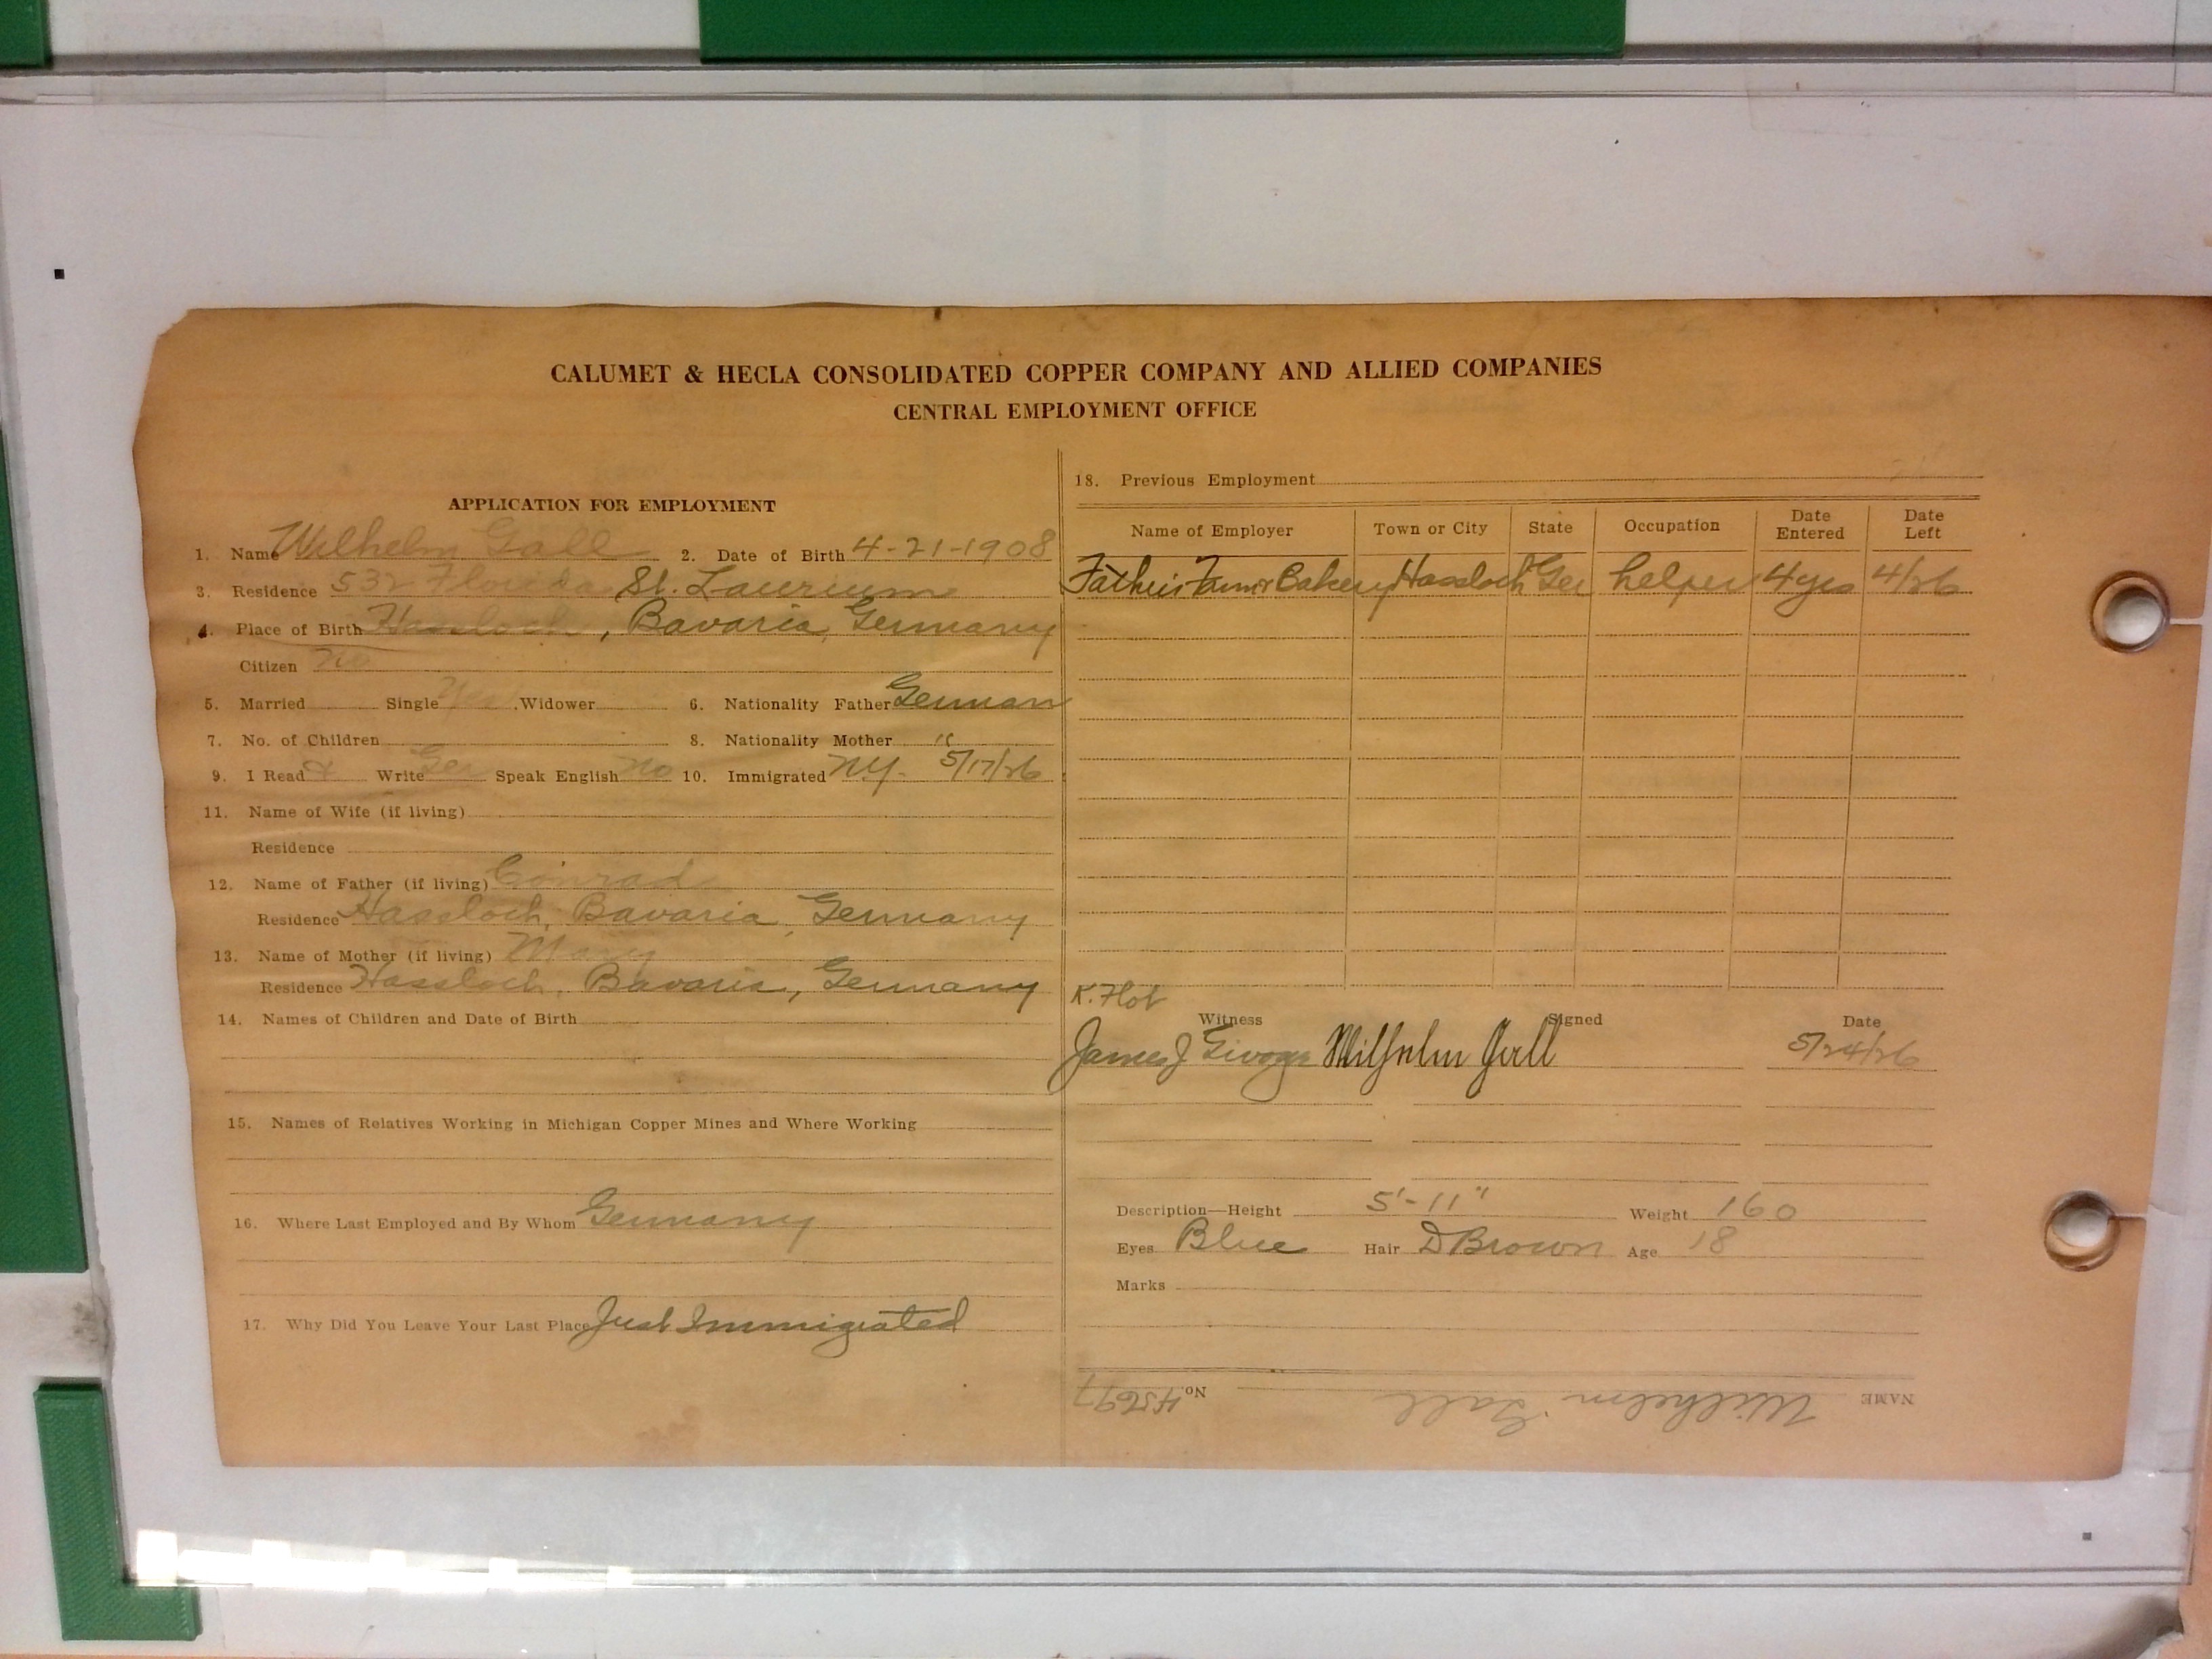 CALUMET & HECLA CONSOLIDATED COPPER COMPANY AND ALLIED COMPANIES
CENTRAL EMPLOYMENT OFFICE
APPLICATION FOR EMPLOYMENT
1. Name Wilhelm Gall 2. Date of Birth 4-21-1908
3. Residence 532 Florida St. Laurium
4. Place of Birth Hassloch, Bavaria, Germany
Citizen no
5. Married Single Widower 6. Nationality Father German
7. No. of Children 8. Nationality Mother "
9. I Read & Write Ger Speak English no 10. Immigrated N.Y. 5/17/26
11. Name of Wife (if living)
Residence
12. Name of Father (if living) Conrad
Residence Hassloch, Bavaria, Germany
13. Name of Mother (if living) Mary
Residence Hassloch, Bavaria, Germany
14. Names of Children and Date of Birth
15. Names of Relatives Working in Michigan Copper Mines and Where Working
16. Where Last Employed and By Whom Germany
17. Why Did You Leave Your Last Place Just Immigrated
18. Previous Employment
Name of Employer Town or City State Occupation Date Entered Date Left
Father's Bakery Hassloch Ger helper 4 yrs 4/26
Witness Signed Date
James J Wilhelm Gall 5/24/26
Description—Height 5'-11" Weight 160
Eyes Blue Hair D Brown Age 18
Marks
NAME Wilhelm Gall No. 45697